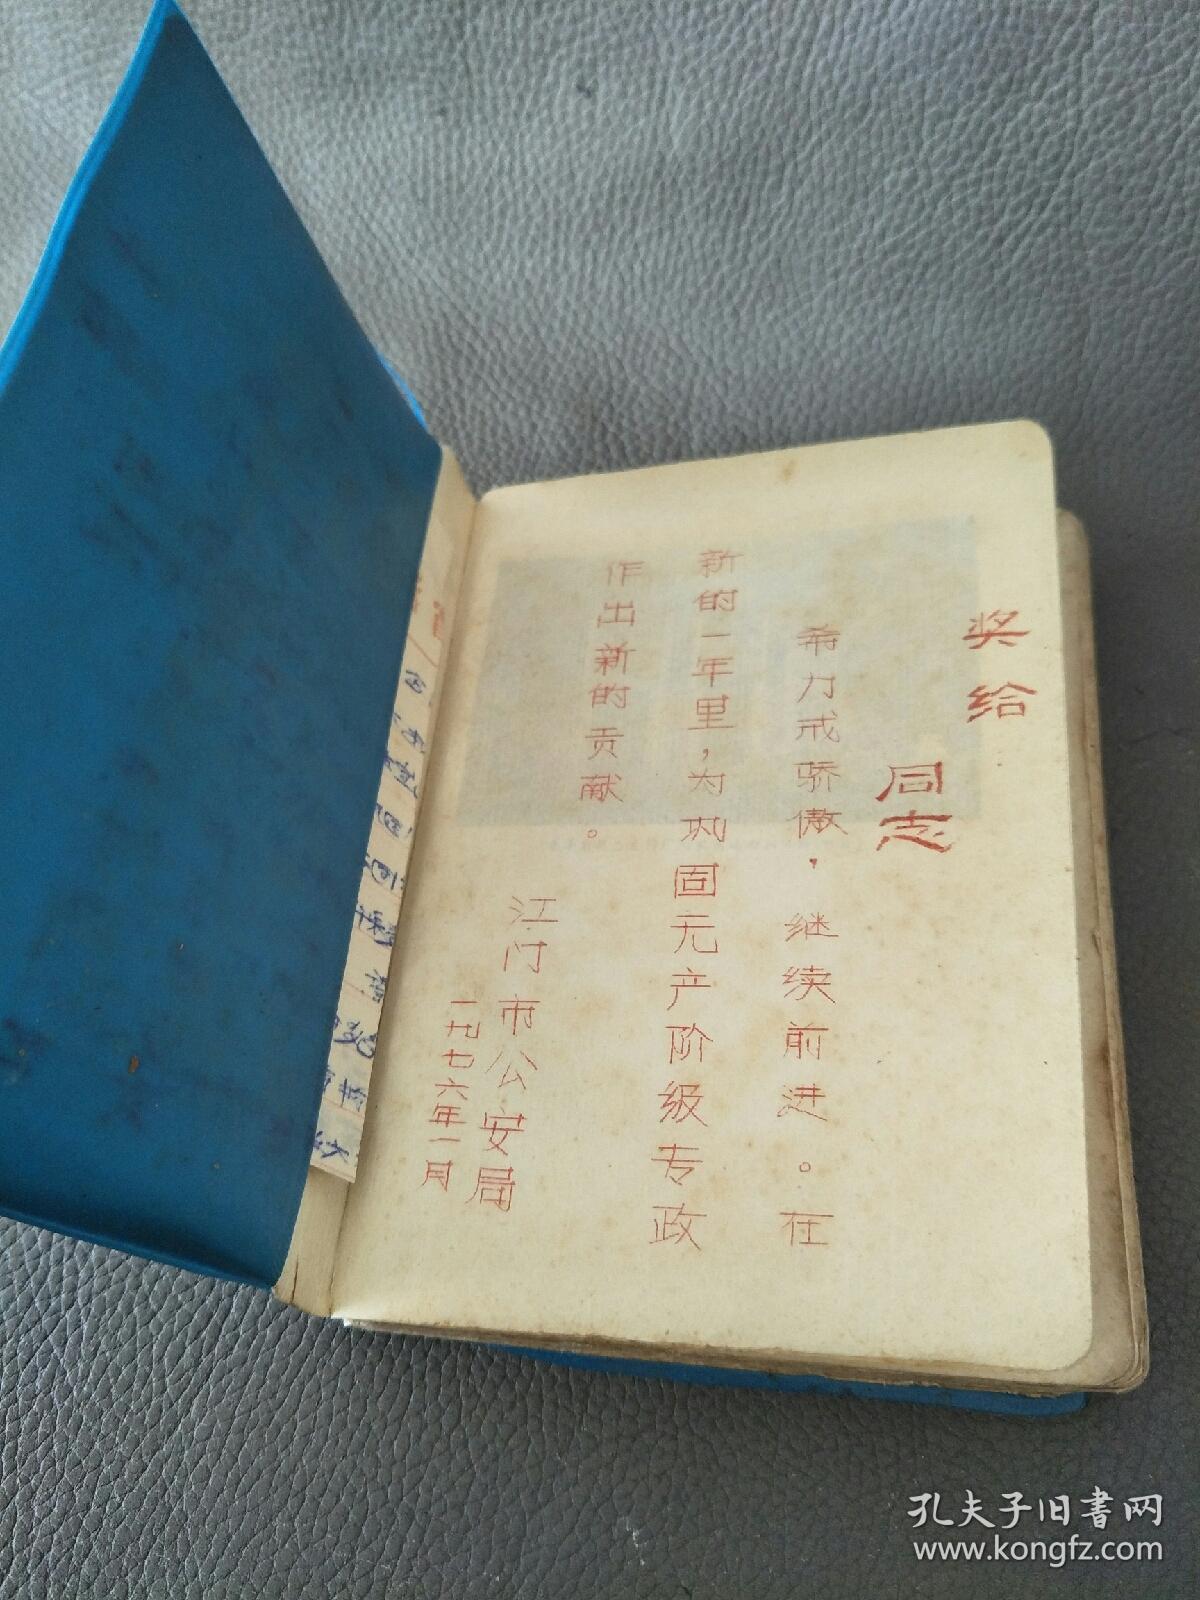 奖给
同志
希力戒骄傲，继续前进。在
新的一年里，为巩固无产阶级专政
作出新的贡献。
江门市公安局
一九七六年一月
孔夫子旧书网
www.kongfz.com